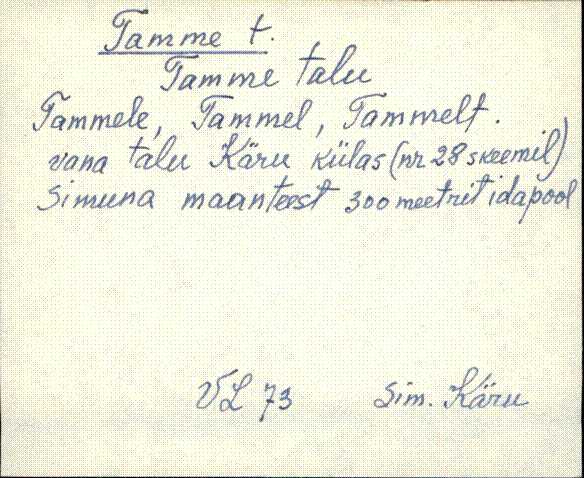 Tamme t.
Tamme talu
Tammele, Tammel, Tammelt.
vana talu Käru külas (nr 28 skeemil)
Simuna maanteest 300 meetrit idapool
VL 73 Sim. Käru